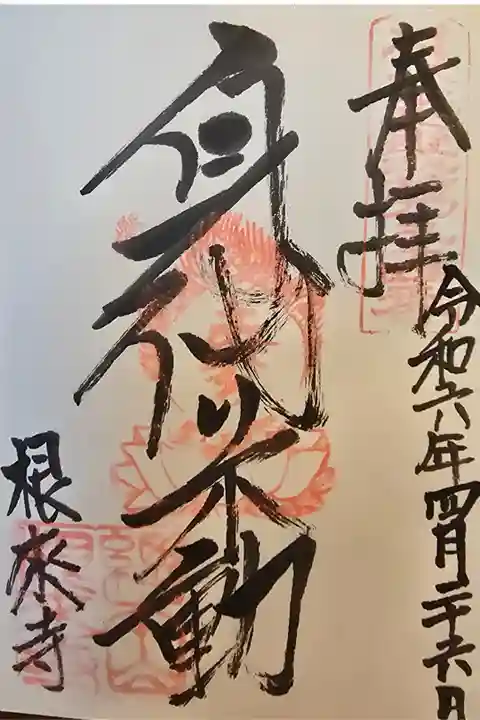 奉拝
令和六年四月二十六日
身代り不動
根來寺